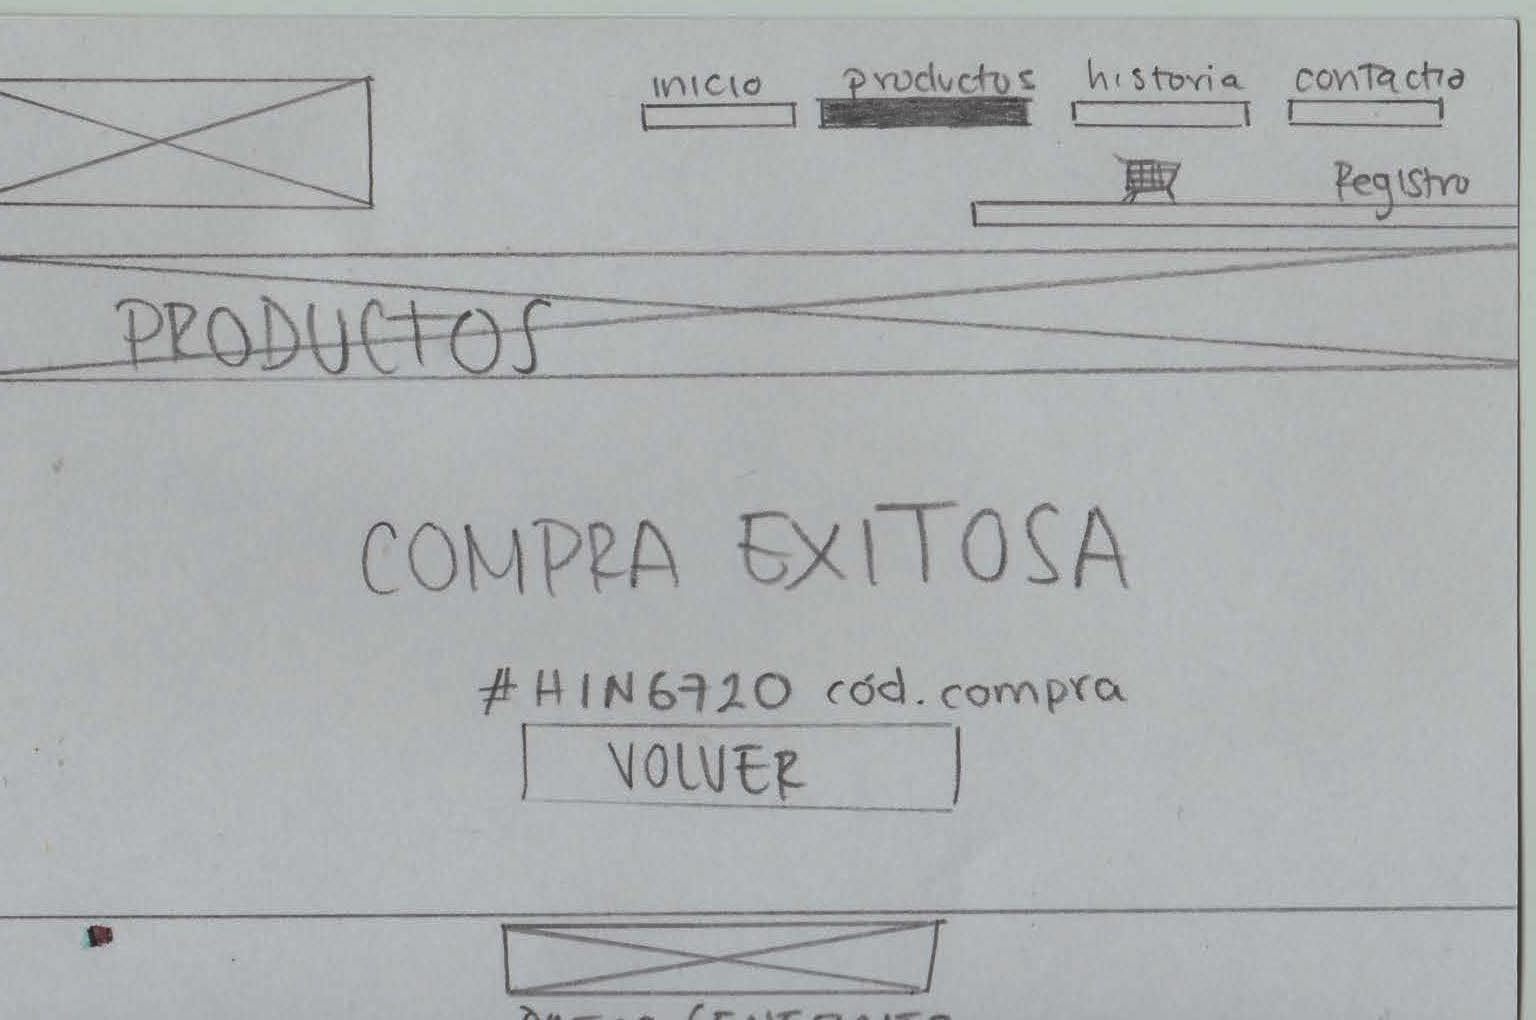 inicio productos historia contacto
Registro
PRODUCTOS
COMPRA EXITOSA
#HIN6720 cód.compra
VOLVER